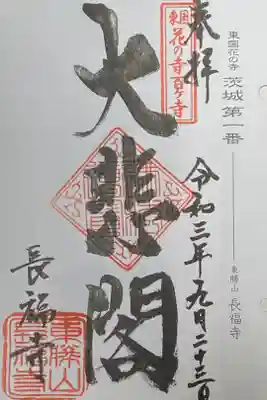 東国花の寺 茨城第一番 ―― 東勝山 長福寺
奉拝
東国
花の寺百ヶ寺
令和三年九月二十三日
大悲閣
長福寺
東勝山